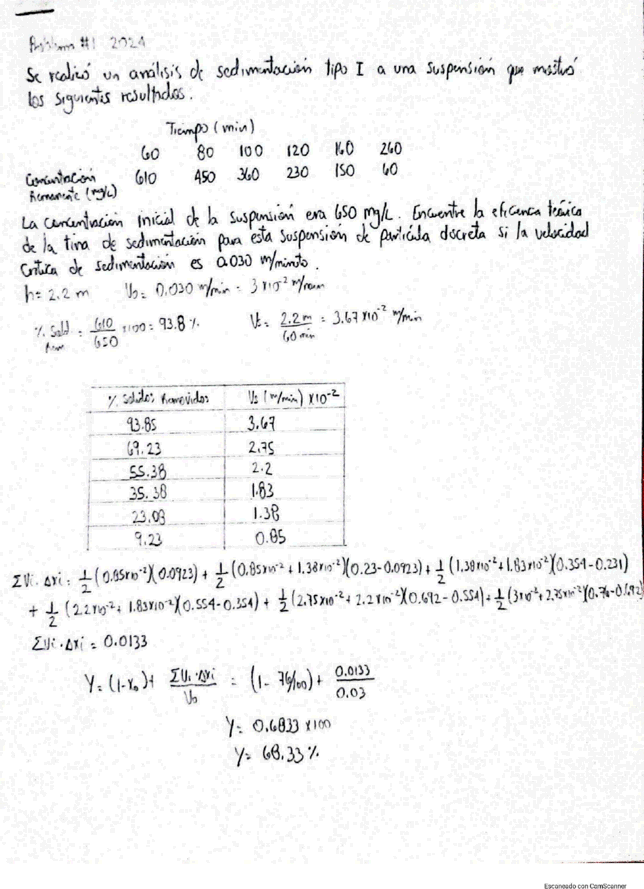 Problema #1 2024
Se realizó un análisis de sedimentación tipo I a una suspensión que mostró
los siguientes resultados.
Tiempo (min)
60 80 100 120 160 260
Concentración 610 450 360 230 150 60
Remanente (mg/L)
La concentración inicial de la suspensión era 650 mg/L. Encuentre la eficiencia teórica
de la tina de sedimentación para esta suspensión de partícula discreta si la velocidad
crítica de sedimentación es 0.030 m/minuto.
h= 2.2 m V₀= 0.030 m/min = 3 x10⁻² m/min
% Solid = 610/650 x100 = 93.8 % Vt = 2.2 m/60 min = 3.67 x10⁻² m/min
Rem
% Solidos Removidos V₀ (m/min) x10⁻²
93.85 3.67
69.23 2.75
55.38 2.2
35.38 1.83
23.08 1.38
9.23 0.85
ΣVi·Δxi = 1/2 (0.85x10⁻²)(0.0923) + 1/2 (0.85x10⁻² + 1.38x10⁻²)(0.23-0.0923) + 1/2 (1.38x10⁻² + 1.83x10⁻²)(0.354-0.231)
+ 1/2 (2.2x10⁻² + 1.83x10⁻²)(0.554-0.354) + 1/2 (2.75x10⁻² + 2.2x10⁻²)(0.692-0.554) + 1/2 (3x10⁻² + 2.75x10⁻²)(0.76-0.692)
ΣVi·Δxi = 0.0133
Y= (1-x₀) + ΣVi·Δxi/V₀ = (1- 76/100) + 0.0133/0.03
Y= 0.6833 x100
Y= 68.33 %
Escaneado con CamScanner